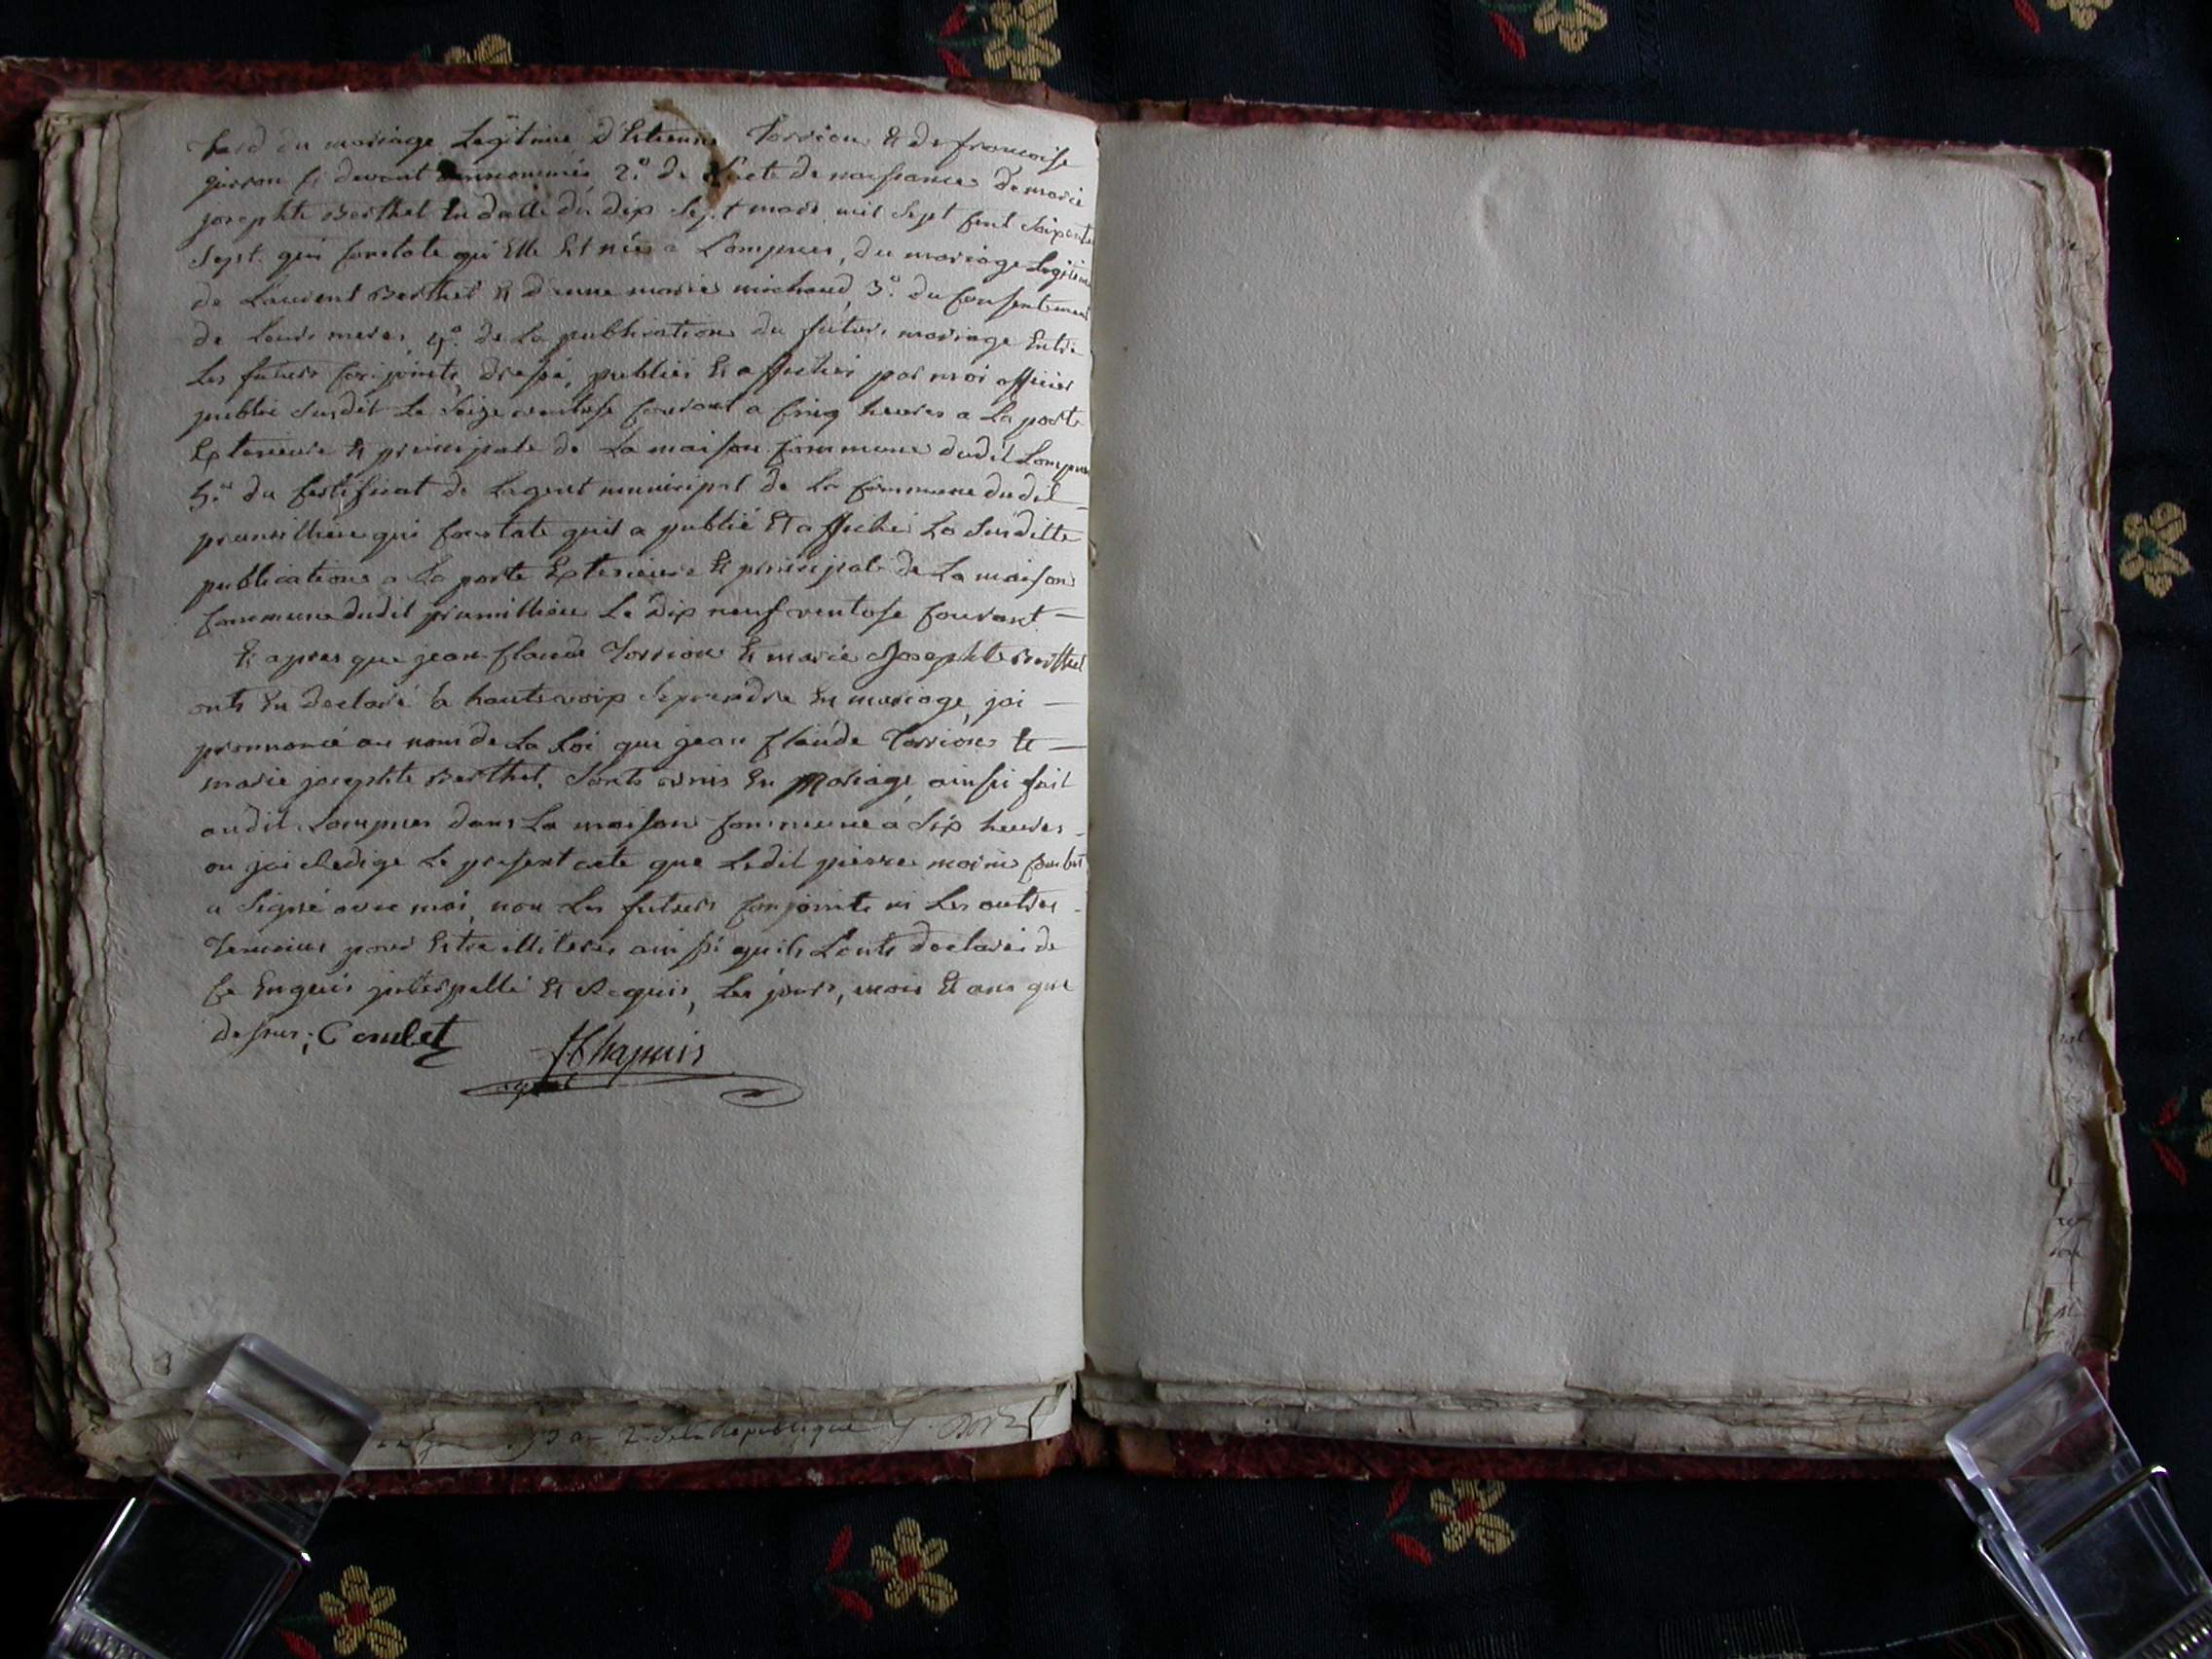 du mariage Legitime d'Etienne Torrion & de francoise
ci devant dennommés, 2.º de L'acte de naissance de marie
josephte Berthet En datte du dix Sept mars mil Sept Cent Soixante
Sept. qui Constate qu'Elle Et née a Lompnes, du mariage Legitime
de Laurent Berthet & d'anne marie michaud, 3.º du Consentement
de Leurs meres, 4.º de La publication du futur mariage Entre
Les futurs Conjoints, dressé, publiés & affichés par moi officier
public Susdit Le Seize ventose Courant a Cinq heures a La porte
Exterieure & principale de La maison Commune dudit Lompnes
5.º du Certificat de Lagent municipal de La Commune dudit
prumillieu qui Constate quil a publié Et affiché La Susditte
publication a La porte Exterieure & principale de La maison
Commune dudit prumillieu Le Dix neuf ventose Courant —
& apres que jean Claude Torrion & marie Josephte Berthet
onts Eu declaré a haute voix Se prendre En mariage, jai —
pronnoncé au nom de La Loi que jean Claude Torrion & —
marie josephte Berthet, Sonts unis En Mariage, ainsi fait
audit Lompnes dans La maison Commune a Six heures -
ou jai Redigé Le present acte que Ledit pierre marie Coulet
a Signé avec moi, non Les futurs Conjoints ni Les autres -
Temoins pour Estre illiterés ainsi quils L'onts declarés de
Ce Enquis interpellé & Requis, Les jours, mois & ans que
dessus; Coulet
Chapuis
agent
2 de la Republique